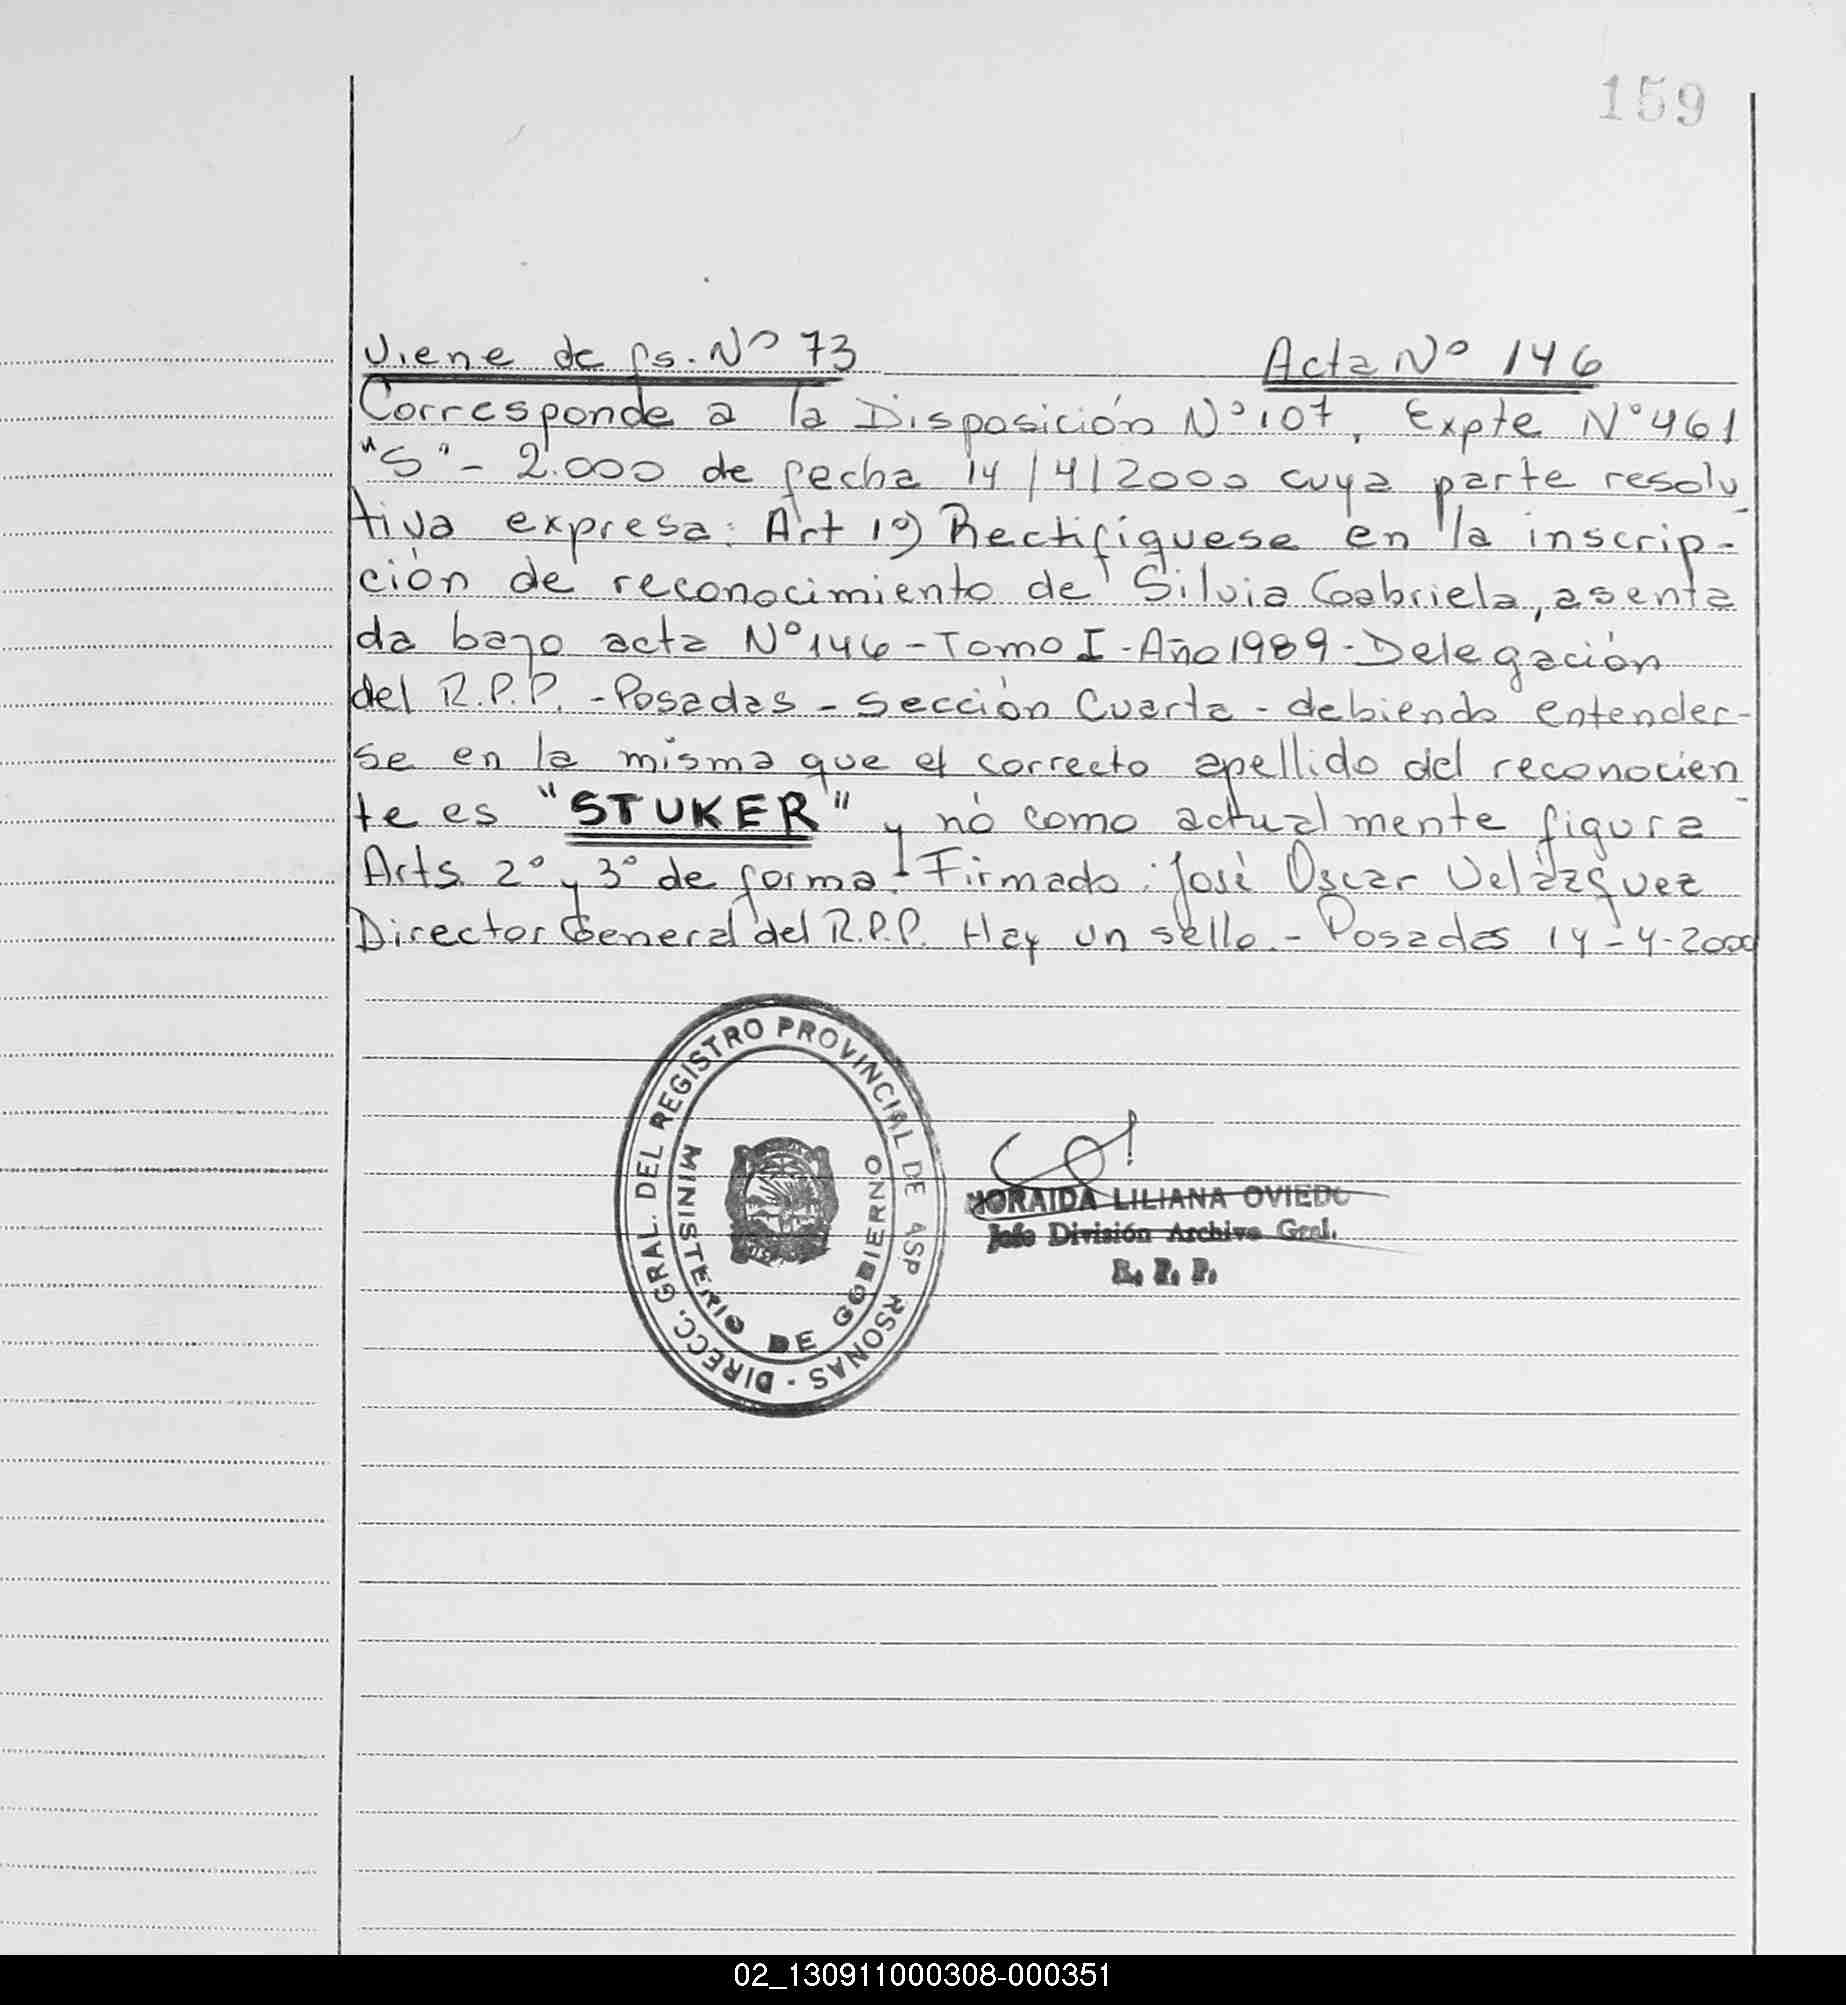 159
Viene de fs. Nº 73 Acta Nº 146
Corresponde a la Disposición Nº 107, Expte Nº 461
"S" - 2.000 de fecha 14/4/2000 cuya parte resolu
tiva expresa: Art 1º) Rectifíquese en la inscrip-
ción de reconocimiento de Silvia Gabriela, asenta
da bajo acta Nº 146 - Tomo I - Año 1989 - Delegación
del R.P.P. - Posadas - Sección Cuarta - debiendo entender-
se en la misma que el correcto apellido del reconocien
te es "STUKER" y no como actualmente figura
Arts. 2º y 3º de forma. Firmado: José Oscar Velázquez
Director General del R.P.P. Hay un sello. - Posadas 14-4-2000
DIRECC. GRAL. DEL REGISTRO PROVINCIAL DE LAS PERSONAS -
MINISTERIO DE GOBIERNO
LILIANA OVIEDO
Jefe División Archivo Gral.
R. P. P.
02_130911000308-000351